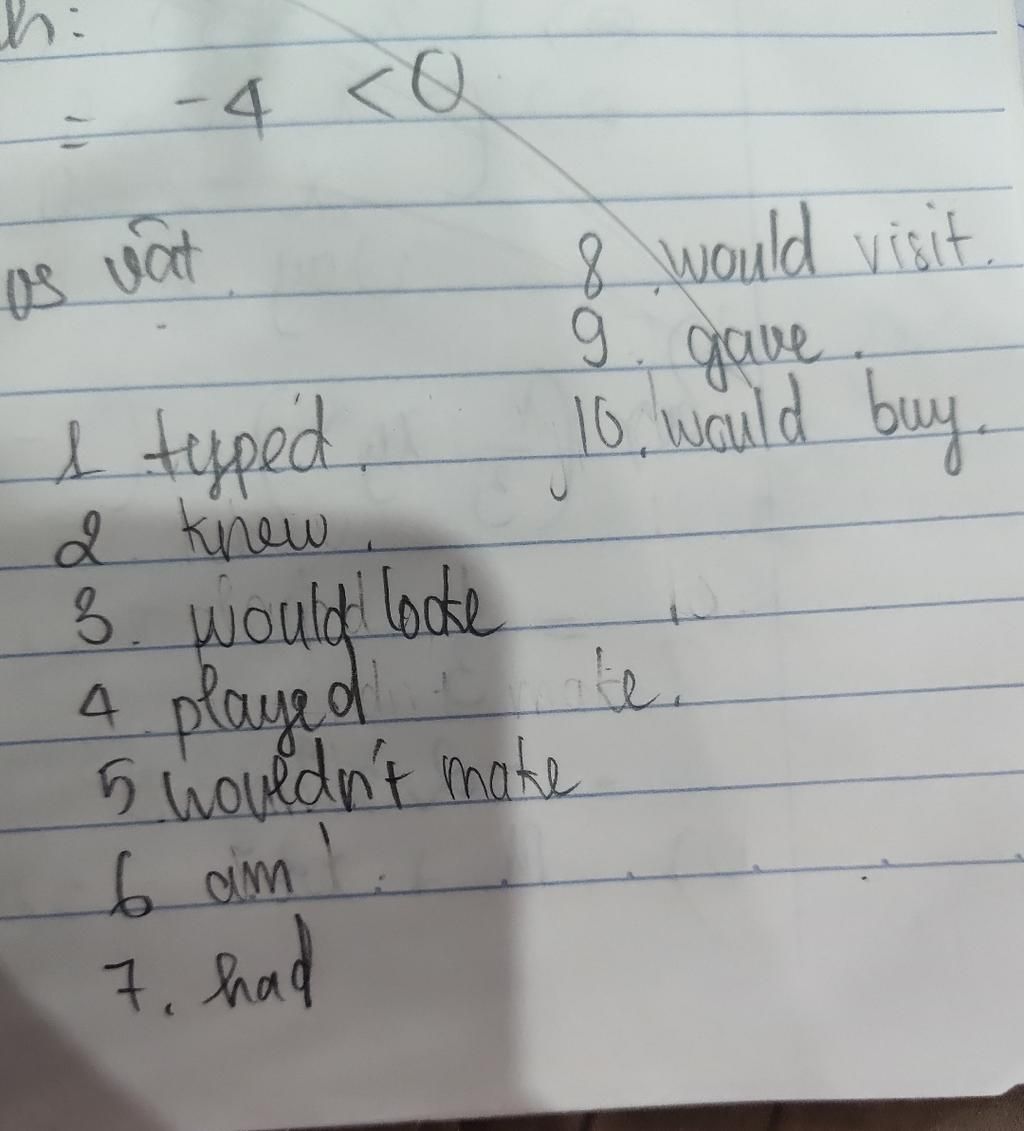 h:
= -4 < 0
os vât.
1 typed.
2 knew.
3. would
4 played
5 wouldn't make
6 aim
7. had
8. would visit.
9. gave.
10. would buy.